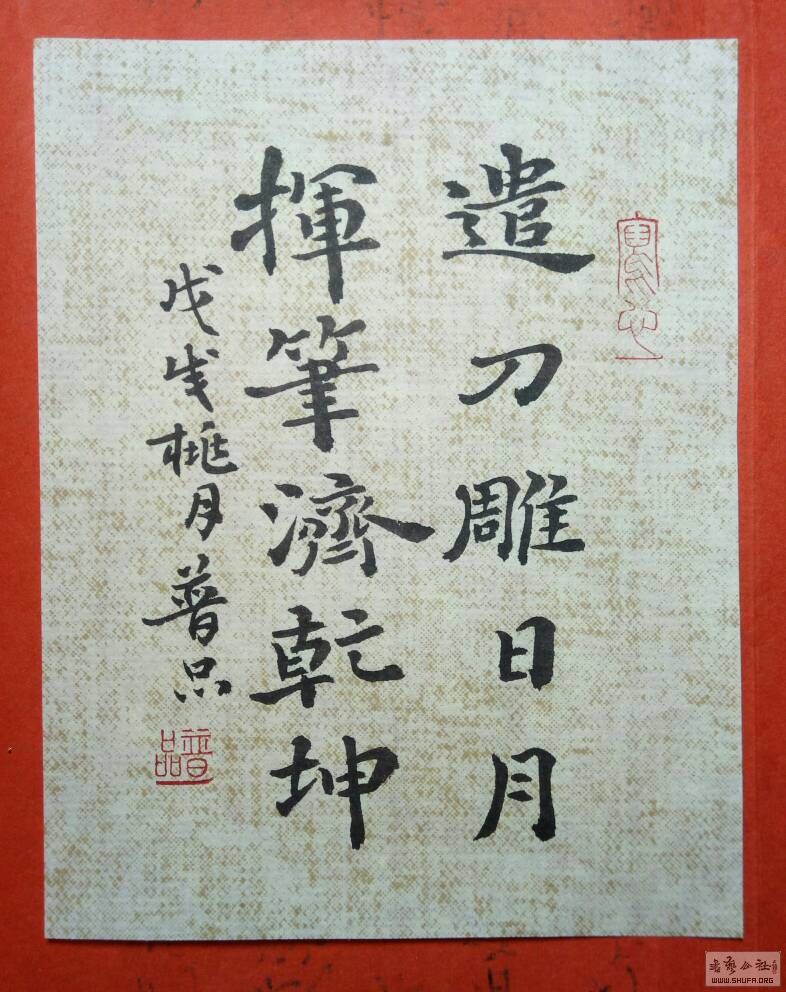 遣刀雕日月
揮筆濟乾坤
戊戌桃月普品
普品
书艺公社
WWW.SHUFA.ORG